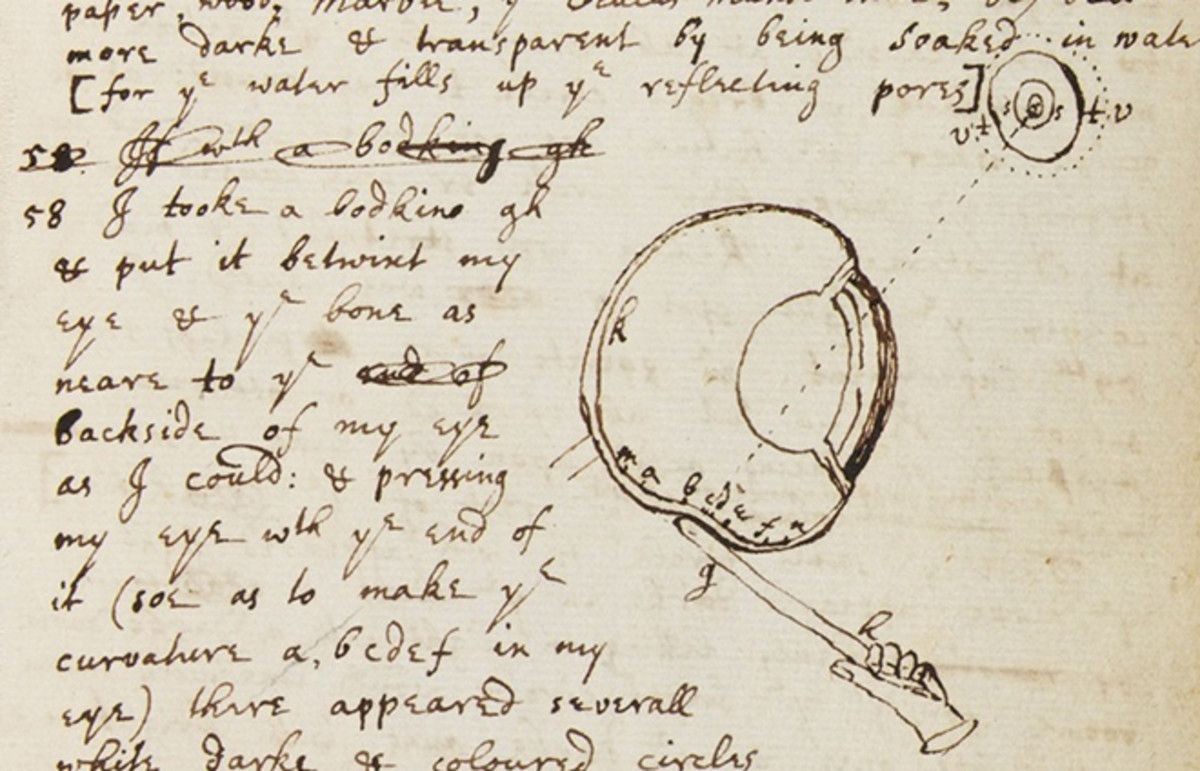 paper, wood, marble, yᵉ
more darke & transparent by being soaked in wate
[for yᵉ water fills up yᵉ reflecting pores]
58 If wth a bodking gh
58 I tooke a bodkine gh
& put it betwixt my
eye & yᵉ bone as
neare to yᵉ end of
backside of my eye
as I could: & pressing
my eye wth yᵉ end of
it (soe as to make yᵉ
curvature a, bcdef in my
eye) there appeared severall
white darke & coloured circles
v t s s t v
k
m a b c d e f n
g
h